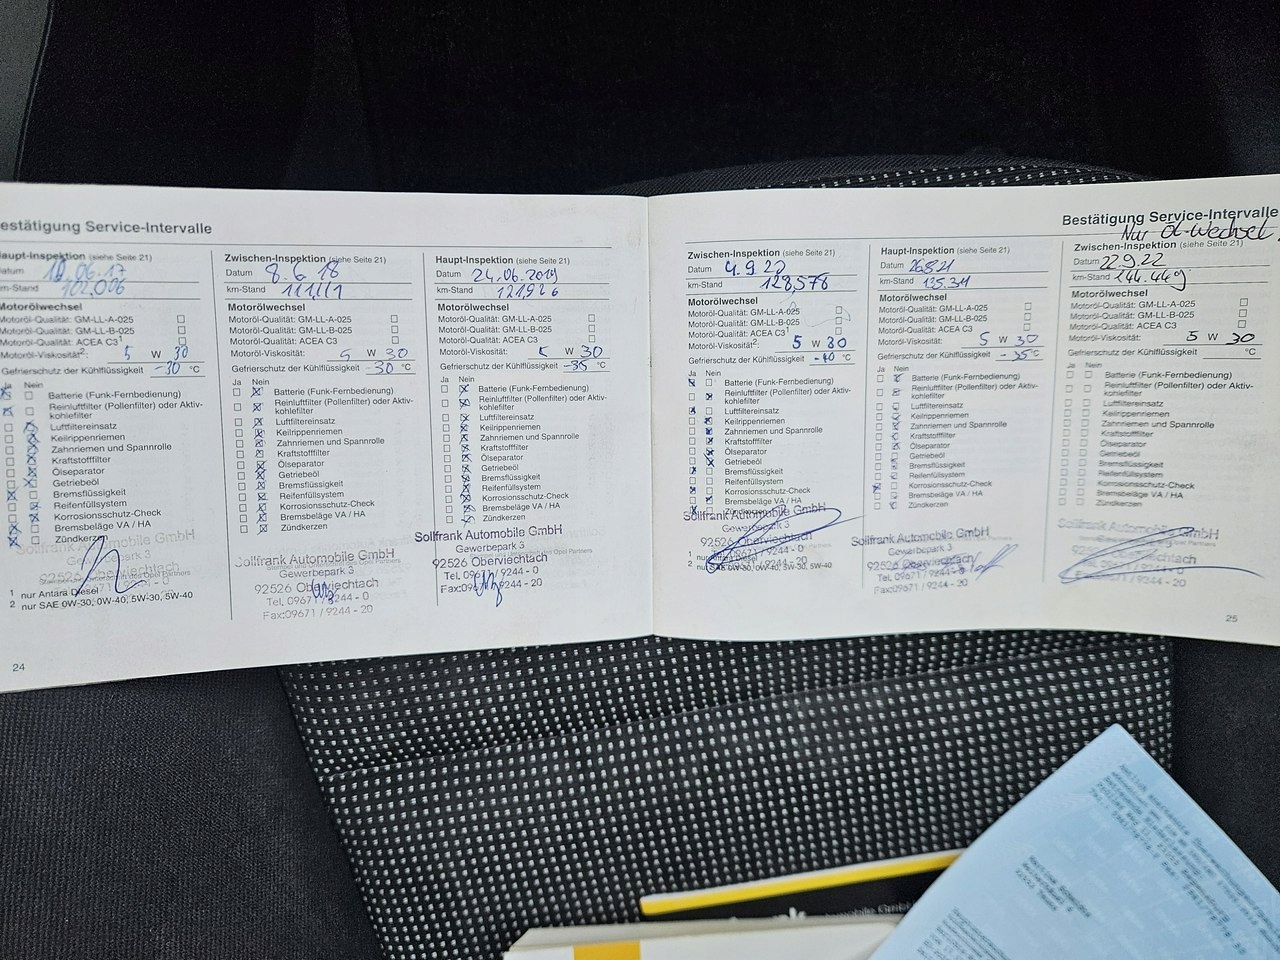 Bestätigung Service-Intervalle
Haupt-Inspektion (siehe Seite 21)
Datum 12.06.17
km-Stand 102.006
Motorölwechsel
Motoröl-Qualität: GM-LL-A-025
Motoröl-Qualität: GM-LL-B-025
Motoröl-Qualität: ACEA C3¹
Motoröl-Viskosität²: 5 W 30
Gefrierschutz der Kühlflüssigkeit -30 °C
Ja Nein
Batterie (Funk-Fernbedienung)
Reinluftfilter (Pollenfilter) oder Aktiv-
kohlefilter
Luftfiltereinsatz
Keilrippenriemen
Zahnriemen und Spannrolle
Kraftstofffilter
Ölseparator
Getriebeöl
Bremsflüssigkeit
Reifenfüllsystem
Korrosionsschutz-Check
Bremsbeläge VA / HA
Zündkerzen
Sollfrank Automobile GmbH
Gewerbepark 3
92526
1 nur Antara Diesel
2 nur SAE 0W-30, 0W-40, 5W-30, 5W-40
24
Zwischen-Inspektion (siehe Seite 21)
Datum 8.6.18
km-Stand 111.111
Motorölwechsel
Motoröl-Qualität: GM-LL-A-025
Motoröl-Qualität: GM-LL-B-025
Motoröl-Qualität: ACEA C3
Motoröl-Viskosität: 5 W 30
Gefrierschutz der Kühlflüssigkeit -30 °C
Ja Nein
Batterie (Funk-Fernbedienung)
Reinluftfilter (Pollenfilter) oder Aktiv-
kohlefilter
Luftfiltereinsatz
Keilrippenriemen
Zahnriemen und Spannrolle
Kraftstofffilter
Ölseparator
Getriebeöl
Bremsflüssigkeit
Reifenfüllsystem
Korrosionsschutz-Check
Bremsbeläge VA / HA
Zündkerzen
Sollfrank Automobile GmbH
Gewerbepark 3
92526 Oberviechtach
Tel. 09671 / 9244 - 0
Fax:09671 / 9244 - 20
Haupt-Inspektion (siehe Seite 21)
Datum 24.06.2019
km-Stand 121.926
Motorölwechsel
Motoröl-Qualität: GM-LL-A-025
Motoröl-Qualität: GM-LL-B-025
Motoröl-Qualität: ACEA C3
Motoröl-Viskosität: 5 W 30
Gefrierschutz der Kühlflüssigkeit -35 °C
Ja Nein
Batterie (Funk-Fernbedienung)
Reinluftfilter (Pollenfilter) oder Aktiv-
kohlefilter
Luftfiltereinsatz
Keilrippenriemen
Zahnriemen und Spannrolle
Kraftstofffilter
Ölseparator
Getriebeöl
Bremsflüssigkeit
Reifenfüllsystem
Korrosionsschutz-Check
Bremsbeläge VA / HA
Zündkerzen
Sollfrank Automobile GmbH
Gewerbepark 3
92526 Oberviechtach
Tel. 09671 / 9244 - 0
Fax:09671 / 9244 - 20
Bestätigung Service-Intervalle
Nur Öl-Wechsel.
Zwischen-Inspektion (siehe Seite 21)
Datum 4.9.20
km-Stand 128,578
Motorölwechsel
Motoröl-Qualität: GM-LL-A-025
Motoröl-Qualität: GM-LL-B-025
Motoröl-Qualität: ACEA C3¹
Motoröl-Viskosität²: 5 W 30
Gefrierschutz der Kühlflüssigkeit -40 °C
Ja Nein
Batterie (Funk-Fernbedienung)
Reinluftfilter (Pollenfilter) oder Aktiv-
kohlefilter
Luftfiltereinsatz
Keilrippenriemen
Zahnriemen und Spannrolle
Kraftstofffilter
Ölseparator
Getriebeöl
Bremsflüssigkeit
Reifenfüllsystem
Korrosionsschutz-Check
Bremsbeläge VA / HA
Zündkerzen
Sollfrank Automobile GmbH
Gewerbepark 3
92526 Oberviechtach
09671 / 9244 - 0
9244 - 20
1 nur Antara Diesel
2 nur SAE 0W-30, 0W-40, 5W-30, 5W-40
Haupt-Inspektion (siehe Seite 21)
Datum 26.8.21
km-Stand 135.311
Motorölwechsel
Motoröl-Qualität: GM-LL-A-025
Motoröl-Qualität: GM-LL-B-025
Motoröl-Qualität: ACEA C3
Motoröl-Viskosität: 5 W 30
Gefrierschutz der Kühlflüssigkeit -35 °C
Ja Nein
Batterie (Funk-Fernbedienung)
Reinluftfilter (Pollenfilter) oder Aktiv-
kohlefilter
Luftfiltereinsatz
Keilrippenriemen
Zahnriemen und Spannrolle
Kraftstofffilter
Ölseparator
Getriebeöl
Bremsflüssigkeit
Reifenfüllsystem
Korrosionsschutz-Check
Bremsbeläge VA / HA
Zündkerzen
Sollfrank Automobile GmbH
Gewerbepark 3
92526 Oberviechtach
Tel. 09671 / 9244 - 0
Fax:09671 / 9244 - 20
Zwischen-Inspektion (siehe Seite 21)
Datum 22.9.22
km-Stand 144.449
Motorölwechsel
Motoröl-Qualität: GM-LL-A-025
Motoröl-Qualität: GM-LL-B-025
Motoröl-Qualität: ACEA C3
Motoröl-Viskosität: 5 W 30
Gefrierschutz der Kühlflüssigkeit °C
Ja Nein
Batterie (Funk-Fernbedienung)
Reinluftfilter (Pollenfilter) oder Aktiv-
kohlefilter
Luftfiltereinsatz
Keilrippenriemen
Zahnriemen und Spannrolle
Kraftstofffilter
Ölseparator
Getriebeöl
Bremsflüssigkeit
Reifenfüllsystem
Korrosionsschutz-Check
Bremsbeläge VA / HA
Zündkerzen
Sollfrank Automobile GmbH
Gewerbepark 3
92526 Oberviechtach
Tel. 09671 / 9244 - 0
9244 - 20
25